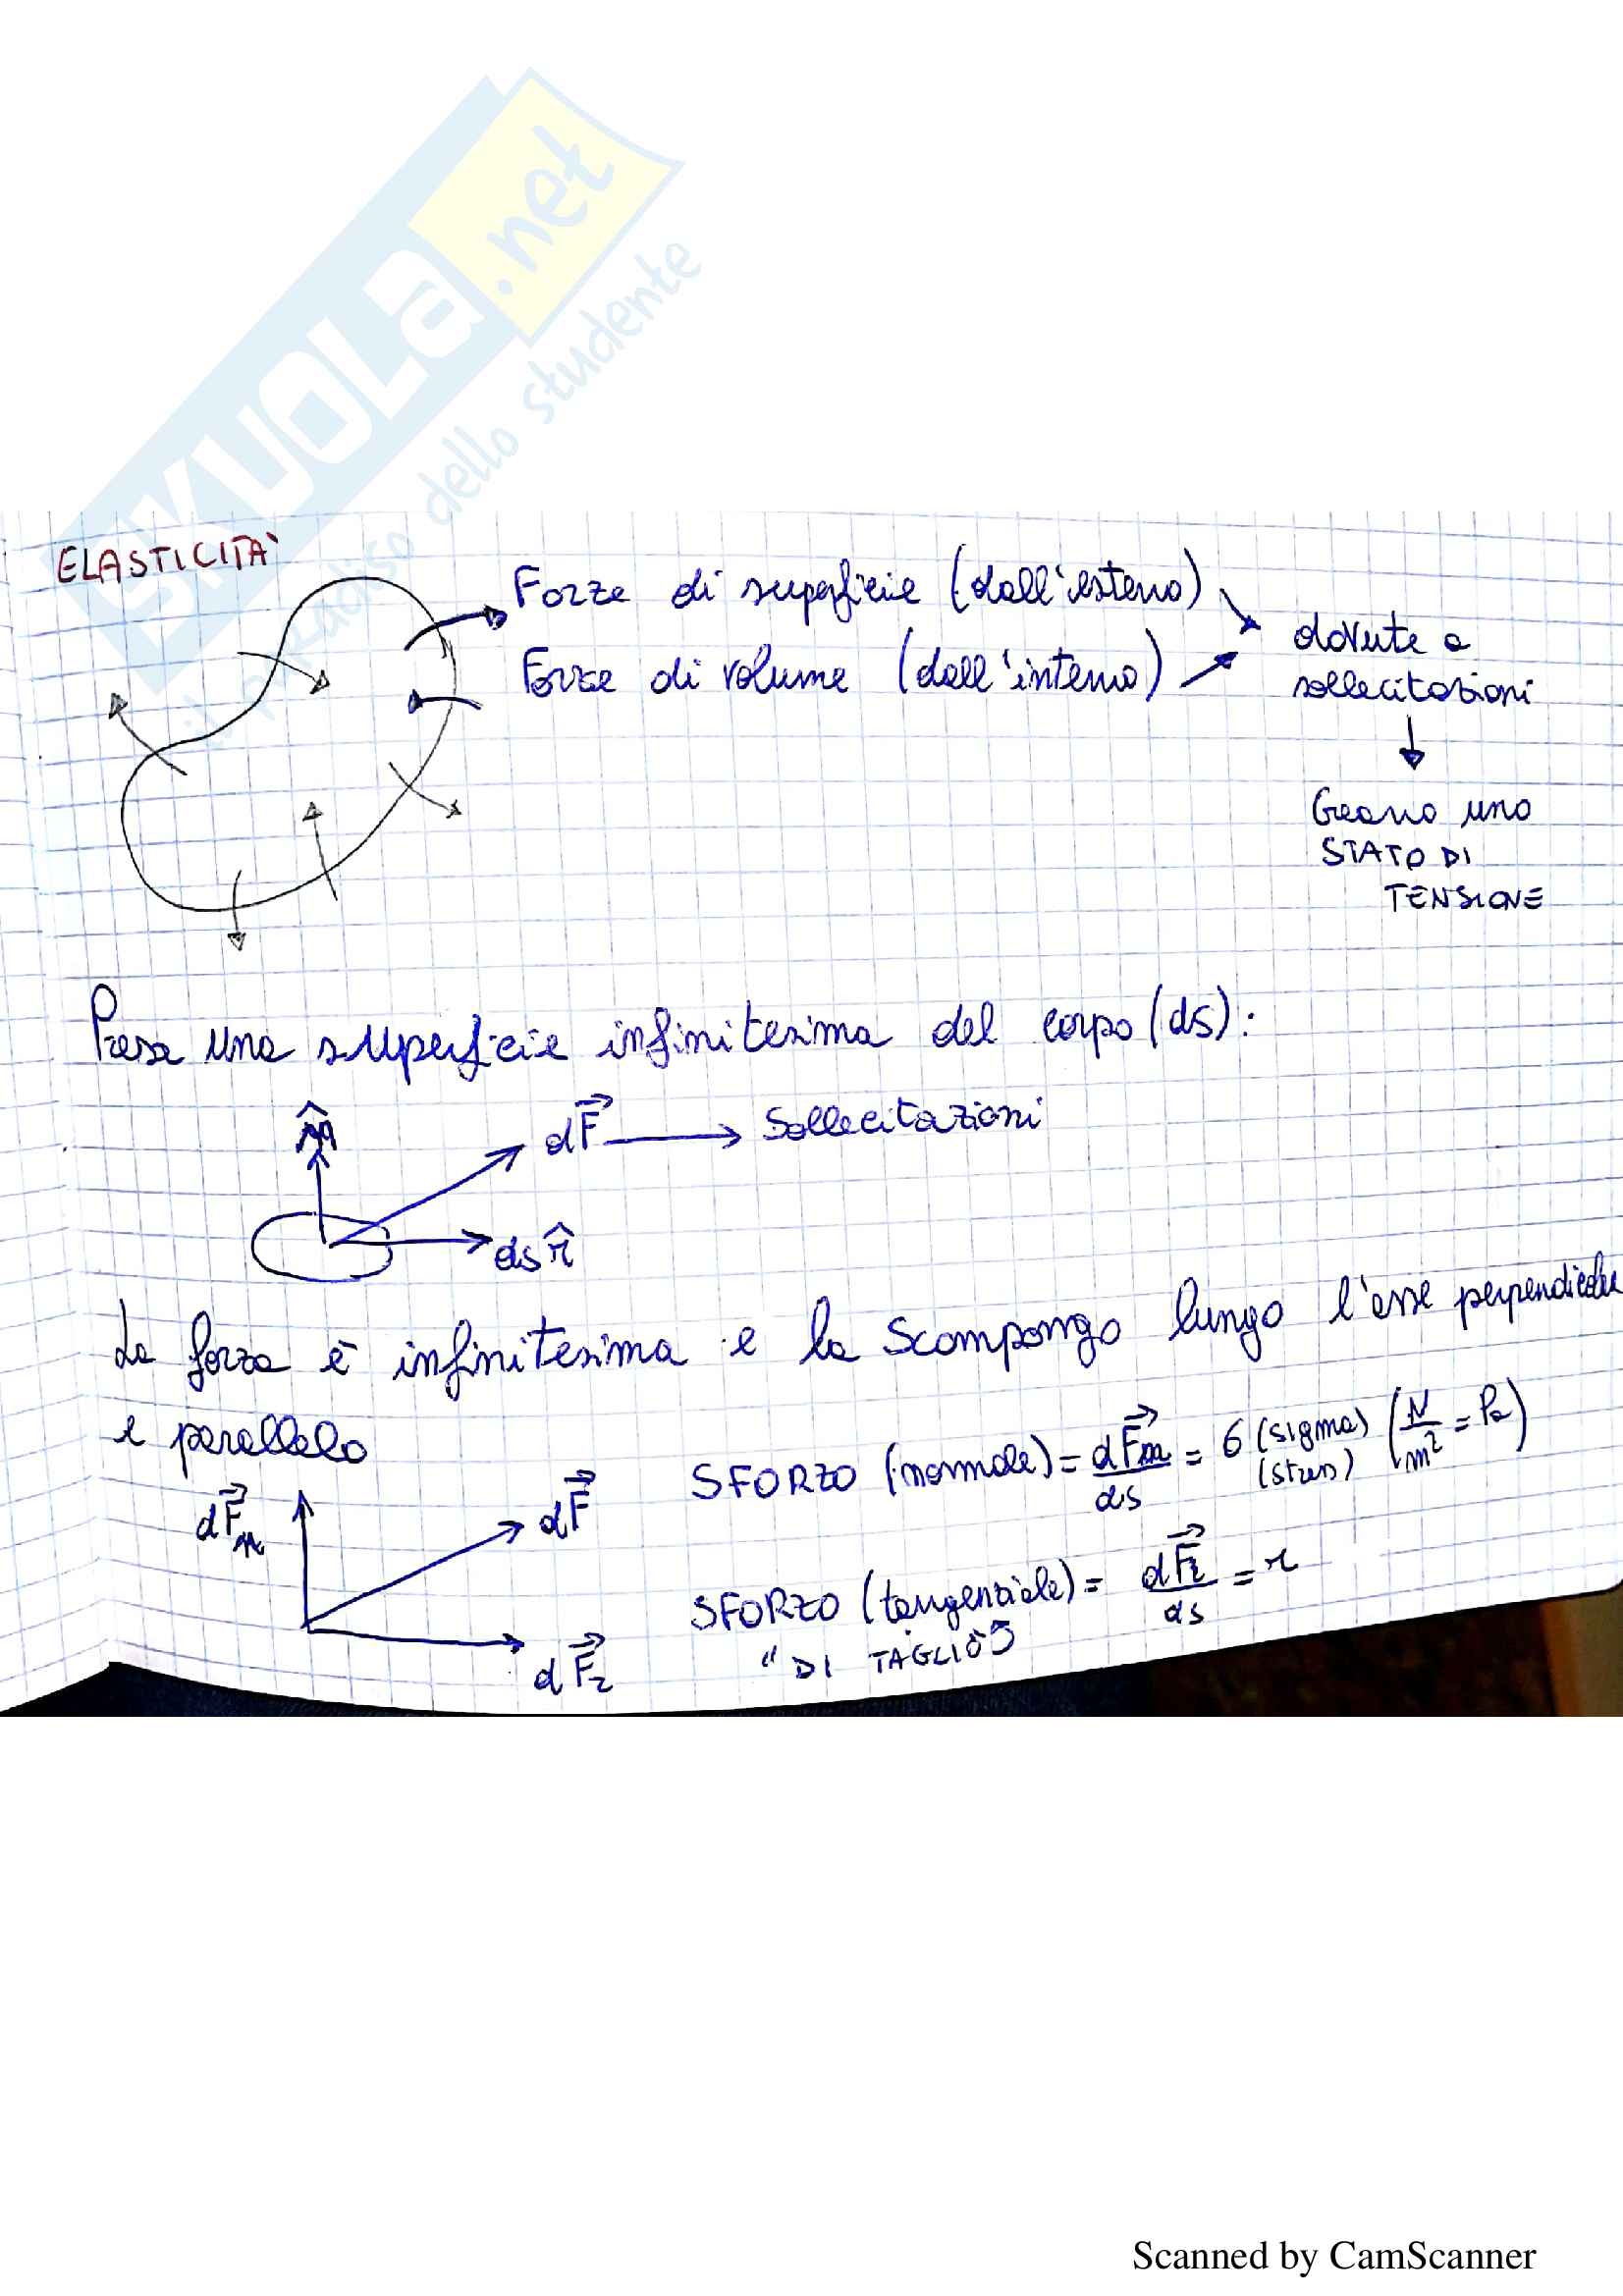 SKUOLA.net
il paradiso dello studente
ELASTICITÀ
Forze di superficie (dall'esterno)
Forze di volume (dall'interno)
dovute a
sollecitazioni
Creano uno
STATO DI
TENSIONE
Presa una superficie infinitesima del corpo (ds):
n̂
dF⃗ → Sollecitazioni
ds τ̂
La forza è infinitesima e la scompongo lungo l'asse perpendicolare
e parallelo
dF⃗n
dF⃗
dF⃗τ
SFORZO (normale) = dF⃗n/ds = σ (sigma) (stress) (N/m² = Pa)
SFORZO (tangenziale) = dF⃗τ/ds = τ
"DI TAGLIO"
Scanned by CamScanner